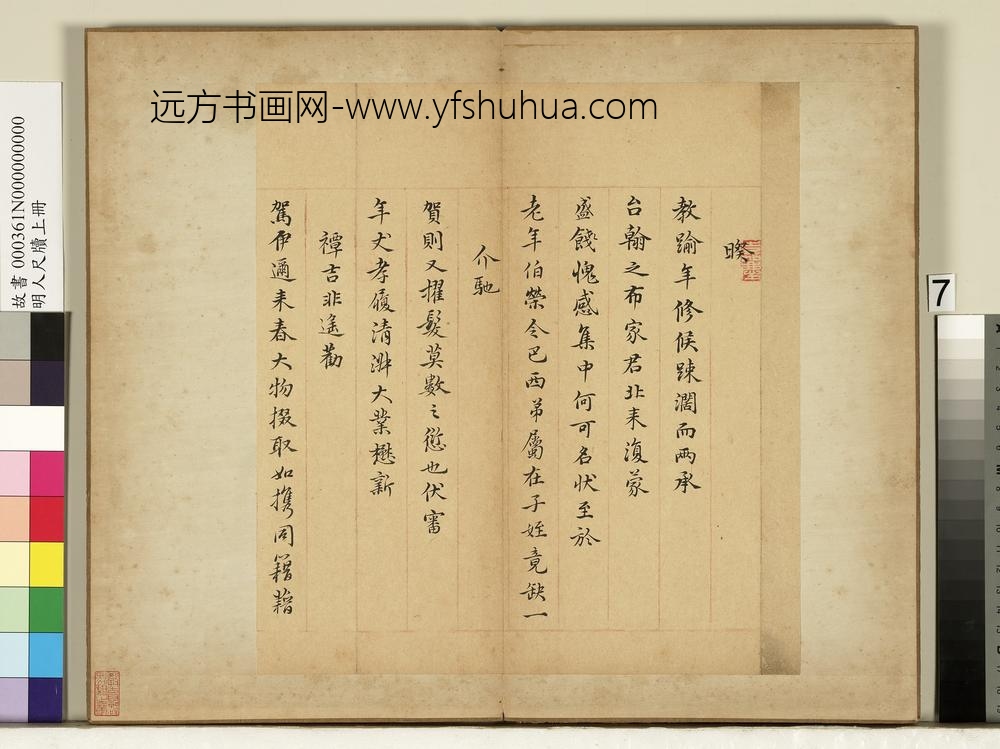 远方书画网-www.yfshuhua.com
教踰年修候踈濶而两承
台翰之布家君北来復蒙
盛餞愧感集中何可名状至於
老年伯榮令巴西弟屬在子姪竟缺一
介馳
賀則又擢髮莫數之愆也伏審
年丈孝履清淋大業懋新
禫吉非遥勸
駕伊邇来春大物掇取如携同籍藉
故書 000361N000000000
明人尺牘上冊
7